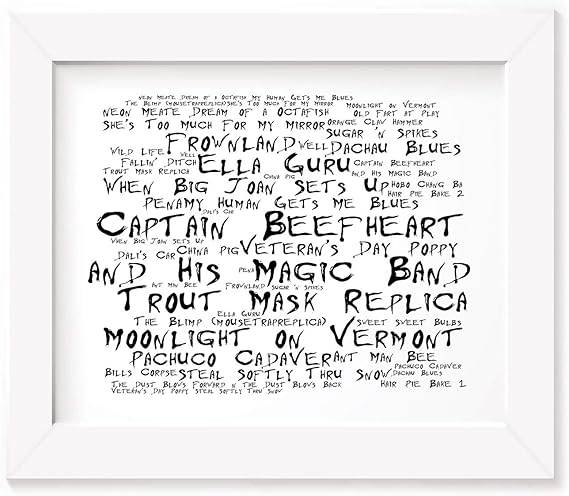 NEON MEATE DREAM OF A OCTAFISH MY HUMAN GETS ME BLUES
THE BLIMP (MOUSETRAPREPLICA)SHE'S TOO MUCH FOR MY MIRROR MOONLIGHT ON VERMONT
NEON MEATE DREAM OF A OCTAFISH OLD FART AT PLAY
SHE'S TOO MUCH FOR MY MIRROR ORANGE CLAW HAMMER
SUGAR 'N SPIKES
WILD LIFE FROWNLAND WELL DACHAU BLUES
FALLIN' DITCH WELL ELLA GURU CAPTAIN BEEFHEART
TROUT MASK REPLICA CHINA PIG AND HIS MAGIC BAND
WHEN BIG JOAN SETS UP HOBO CHANG BA
PENA MY HUMAN GETS ME BLUES HAIR PIE BAKE 2
DALI'S CAR
CAPTAIN BEEFHEART
WHEN BIG JOAN SETS UP
DALI'S CAR CHINA PIG VETERAN'S DAY POPPY
AND HIS PENA MAGIC BAND
ANT MAN BEE FROWNLAND SUGAR 'N SPIKES
TROUT MASK REPLICA
ELLA GURU
THE BLIMP (MOUSETRAPREPLICA) SWEET SWEET BULBS
MOONLIGHT ON VERMONT
PACHUCO CADAVER ANT MAN BEE
PACHUCO CADAVER
BILLS CORPSE STEAL SOFTLY THRU SNOW DACHAU BLUES
THE DUST BLOWS FORWARD N THE DUST BLOWS BACK HAIR PIE BAKE 1
VETERAN'S DAY POPPY STEAL SOFTLY THRU SNOW